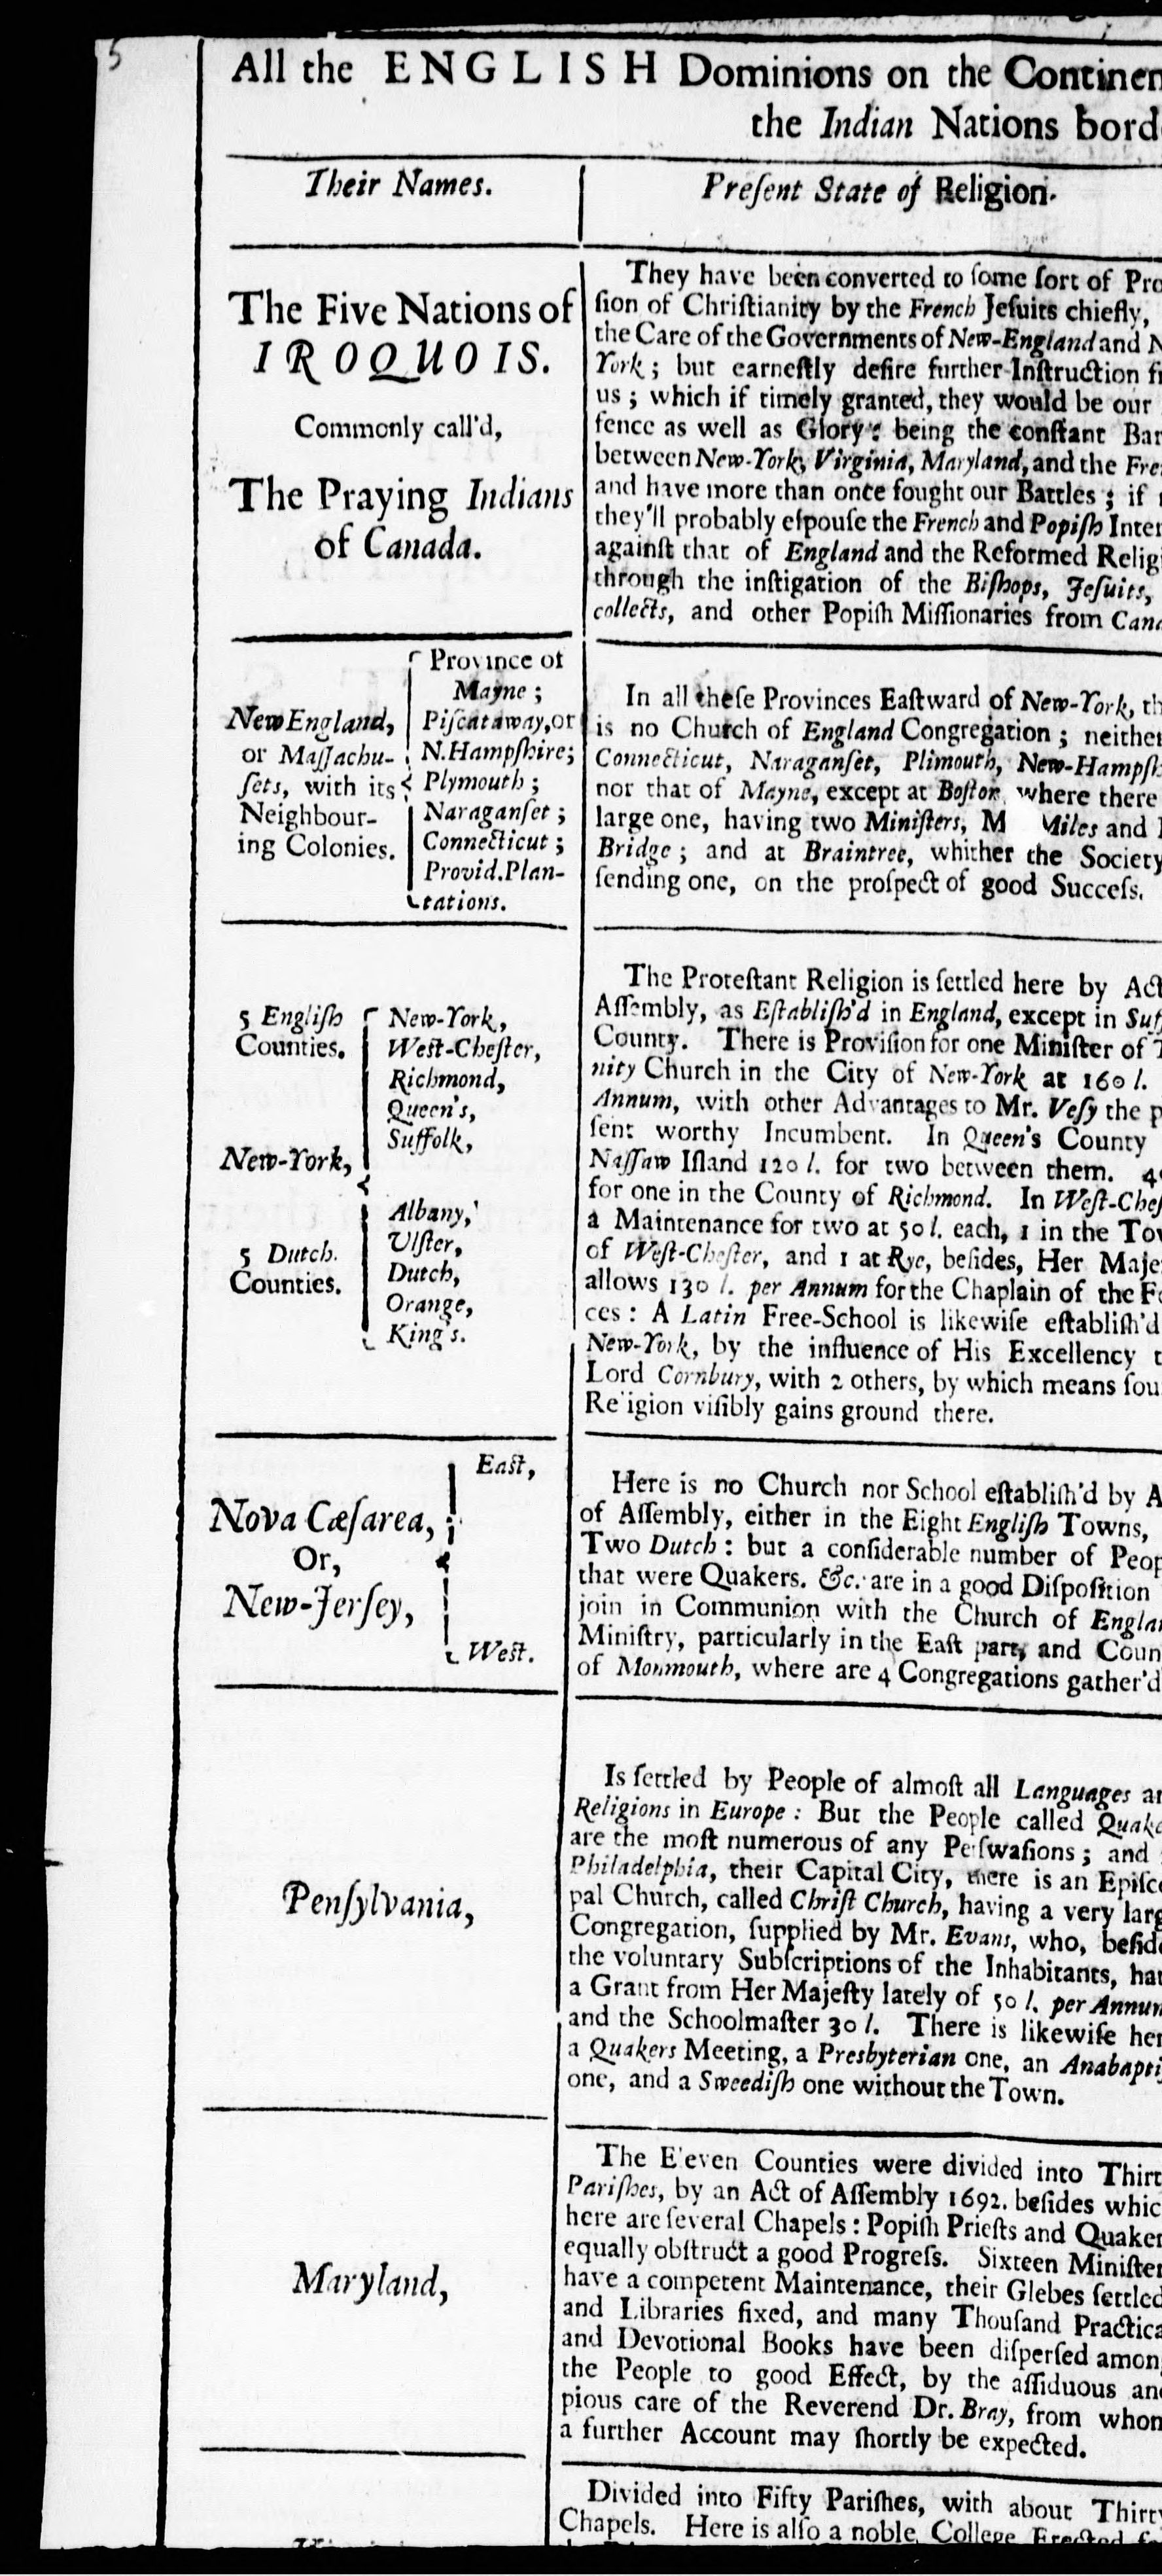 5
All the ENGLISH Dominions on the Continen
the Indian Nations bord
Their Names.
Preſent State of Religion.
The Five Nations of
IROQUOIS.
Commonly call'd,
The Praying Indians
of Canada.
They have been converted to ſome ſort of Pro
ſion of Chriſtianity by the French Jeſuits chiefly,
the Care of the Governments of New-England and N
York; but earneſtly deſire further Inſtruction fr
us; which if timely granted, they would be our
fence as well as Glory: being the conſtant Bar
between New-York, Virginia, Maryland, and the Fre
and have more than once fought our Battles; if
they'll probably eſpouſe the French and Popiſh Inter
againſt that of England and the Reformed Relig
through the inſtigation of the Biſhops, Jeſuits,
collects, and other Popiſh Miſſionaries from Cana
New England,
or Maſſachu-
ſets, with its
Neighbour-
ing Colonies.
Province of
Mayne;
Piſcataway, or
N. Hampſhire;
Plymouth;
Naraganſet;
Connecticut;
Provid. Plan-
tations.
In all theſe Provinces Eaſtward of New-York, th
is no Church of England Congregation; neither
Connecticut, Naraganſet, Plimouth, New-Hampſh
nor that of Mayne, except at Boſton where there
large one, having two Miniſters, M Miles and
Bridge; and at Braintree, whither the Society
ſending one, on the proſpect of good Succeſs.
5 Engliſh
Counties.
New-York,
5 Dutch
Counties.
New-York,
Weſt-Cheſter,
Richmond,
Queen's,
Suffolk,
Albany,
Ulſter,
Dutch,
Orange,
King's.
The Proteſtant Religion is ſettled here by Act
Aſſembly, as Eſtabliſh'd in England, except in Suf
County. There is Proviſion for one Miniſter of T
nity Church in the City of New-York at 160 l.
Annum, with other Advantages to Mr. Veſy the p
ſent worthy Incumbent. In Queen's County
Naſſaw Iſland 120 l. for two between them. 4
for one in the County of Richmond. In Weſt-Cheſ
a Maintenance for two at 50 l. each, 1 in the Tow
of Weſt-Cheſter, and 1 at Rye, beſides, Her Maje
allows 130 l. per Annum for the Chaplain of the Fo
ces: A Latin Free-School is likewiſe eſtabliſh'd
New-York, by the influence of His Excellency t
Lord Cornbury, with 2 others, by which means ſou
Re igion viſibly gains ground there.
Nova Cæſarea,
Or,
New-Jerſey,
Eaſt,
Weſt.
Here is no Church nor School eſtabliſh'd by A
of Aſſembly, either in the Eight Engliſh Towns,
Two Dutch: but a conſiderable number of Peop
that were Quakers. &c. are in a good Diſpoſition
join in Communion with the Church of Englan
Miniſtry, particularly in the Eaſt part, and Coun
of Monmouth, where are 4 Congregations gather'd
Penſylvania,
Is ſettled by People of almoſt all Languages an
Religions in Europe: But the People called Quake
are the moſt numerous of any Perſwaſions; and
Philadelphia, their Capital City, there is an Epiſco
pal Church, called Chriſt Church, having a very larg
Congregation, ſupplied by Mr. Evans, who, beſide
the voluntary Subſcriptions of the Inhabitants, hat
a Grant from Her Majeſty lately of 50 l. per Annum
and the Schoolmaſter 30 l. There is likewiſe her
a Quakers Meeting, a Presbyterian one, an Anabapti
one, and a Sweediſh one without the Town.
Maryland,
The E'even Counties were divided into Thirt
Pariſhes, by an Act of Aſſembly 1692. beſides whic
here are ſeveral Chapels: Popiſh Prieſts and Quaker
equally obſtruct a good Progreſs. Sixteen Miniſter
have a competent Maintenance, their Glebes ſettled
and Libraries fixed, and many Thouſand Practica
and Devotional Books have been diſperſed among
the People to good Effect, by the aſſiduous an
pious care of the Reverend Dr. Bray, from whom
a further Account may ſhortly be expected.
Divided into Fifty Pariſhes, with about Thirty
Chapels. Here is alſo a noble College Erected